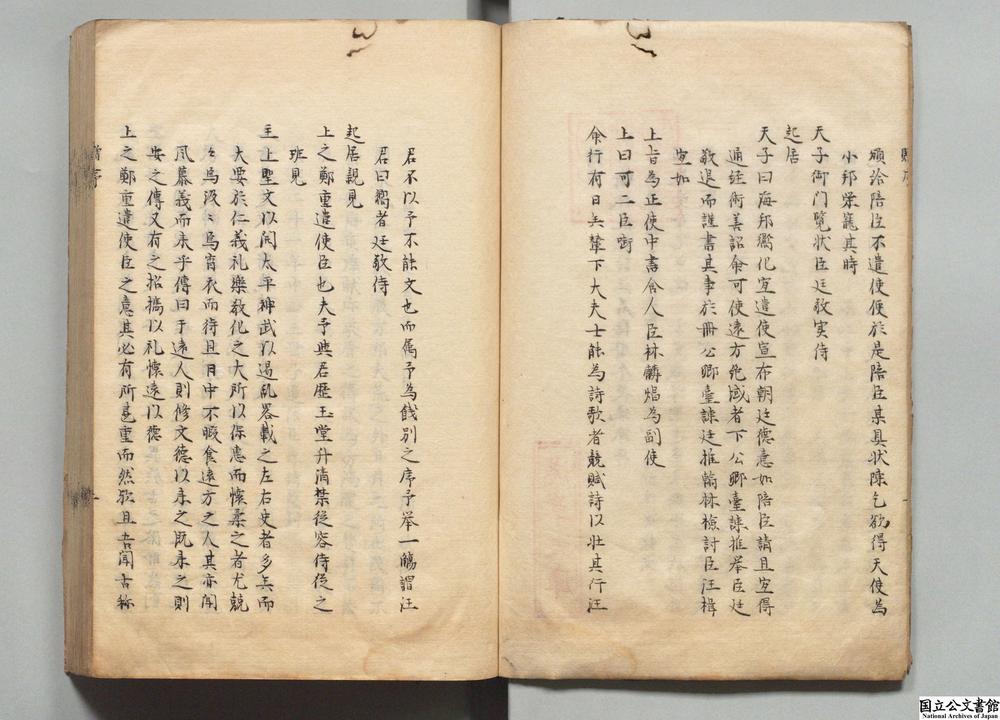 頒洽陪臣不遣使便於是陪臣某具状陳乞欲得天使為
小邦栄寵其時
天子御門覧状臣廷敬実侍
起居
天子曰海邦嚮化宜遣使宣布朝廷德意如陪臣請且宜得
通経術美詔余可使遠方絶域者下公卿臺諫推挙臣廷
敬退而謹書其事於冊公卿臺諫廷推翰林檢討臣汪楫
宜如
上旨為正使中書舍人臣林麟焻為副使
上曰可二臣啣
命行有日矣輦下大夫士能為詩歌者競賦詩以壮其行汪
君不以予不能文也而属予為餞別之序予举一觴謂汪
君曰嚮者廷敬侍
起居親見
上之鄭重遣使臣也夫予与君歴玉堂升清禁従容侍従之
班見
主上聖文以開太平神武以遏乱畧載之左右史者多矣而
大要於仁義礼樂教化之大所以保惠而懷柔之者尤兢
々焉汲々焉宵衣而待旦日中不暇食遠方之人其亦聞
風慕義而来乎傳曰于遠人則修文德以来之既来之則
安之傳又有之招攜以礼懷遠以德
上之鄭重遣使臣之意其必有所甚重而然欤且吾聞古称
国立公文書館
National Archives of Japan